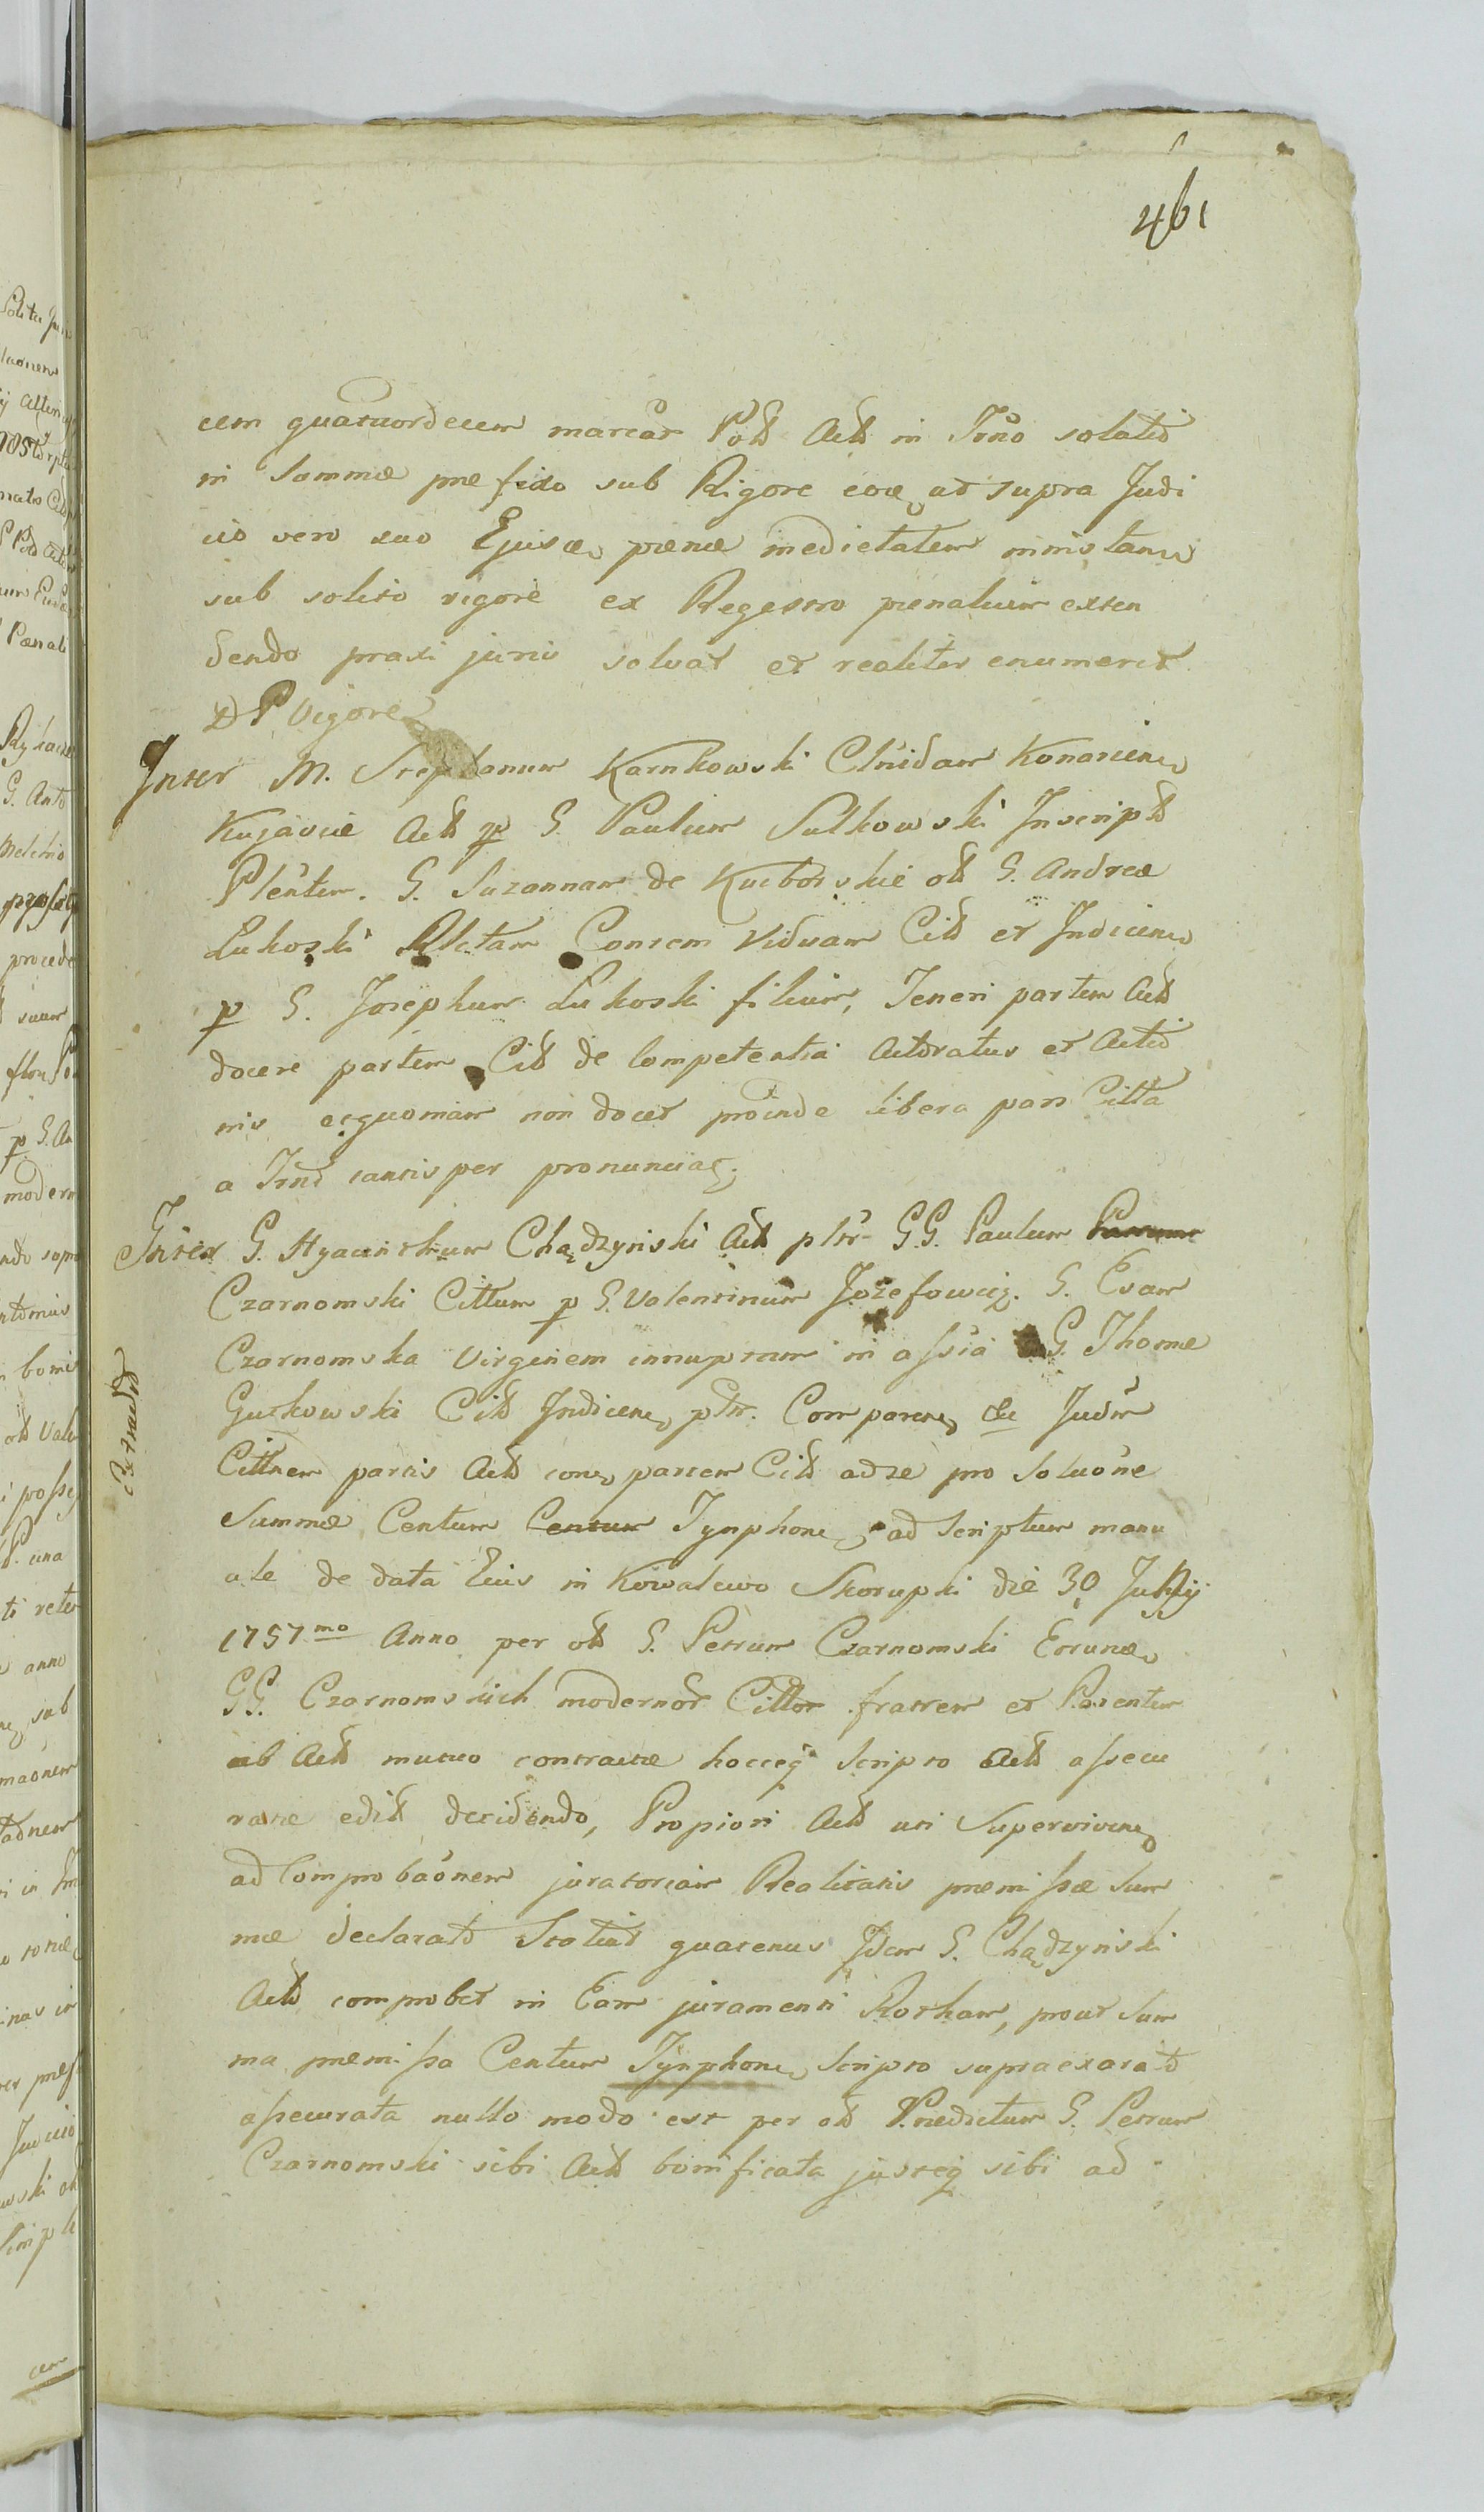 461
cem quatuordecim marcar Pôd Actt in Trno solatid
in Somma pnefixo sub Rigore eoe ut supra Judi
cio vero suo Ejusd pænæ medietatem ministan
sub solito rigore ex Regestro pænalium exten
dendo praxi juris solvat et realiter enumeret
D P Vigore
Inter M. Stephanum Karnkowski Clnidam Konarien
Kujaviæ Actt p G. Paulum Sulkowski Inscript
Plentem. G. Suzannam de Kuiborskie ott G. Andreæ
Lukoski Rlctam Consem Viduam Citt et Indicen
p G. Josephum Lukoski filium, Teneri partem Actt
docere partem Citt de Competentia Actoratus et Actio
nis eoquoniam non docet proinde libera pars Citta
a Trmo tantisper pronunciat;
Inter G. Hyacinthum Chądzyński Actt pltr GG. Paulum
Czarnomski Cittum p G. Valentinum Jozefowicz. G. Evam
Czarnomska Virginem innuptam in assia G. Thomæ
Gutkowski Citt Indicen pltr. Comparen de Judm
Cittnem partis Actt con partem Citt ad se pro Solucône
Summæ Centum Centum Tynphon ad Scriptum manu
ale de data Eius in Kowalewo Skorupki die 30 Julij
1757mo Anno per ott G. Petrum Czarnomski Eorund
GG. Czarnomskich modernor Cittor fratrem et Parentem
ab Actt mutuo contractæ hocceq Scripto Actt assecu
ratæ editt decidendo, Propiori Actt uti Superviven
ad Comprobaônem juratoriam Realitatis præmissæ Sum
mæ declarato Statuit quatenus Idem G. Chądzyński
Actt comprobet in Eam juramenti Rotham, prout Sum
ma præmissa Centum Tynphon Scripto supraexarato
assecurata nullo modo est per ott Pnedictum G. Petrum
Czarnomski sibi Actt bonificata justeq sibi ad
Extractt